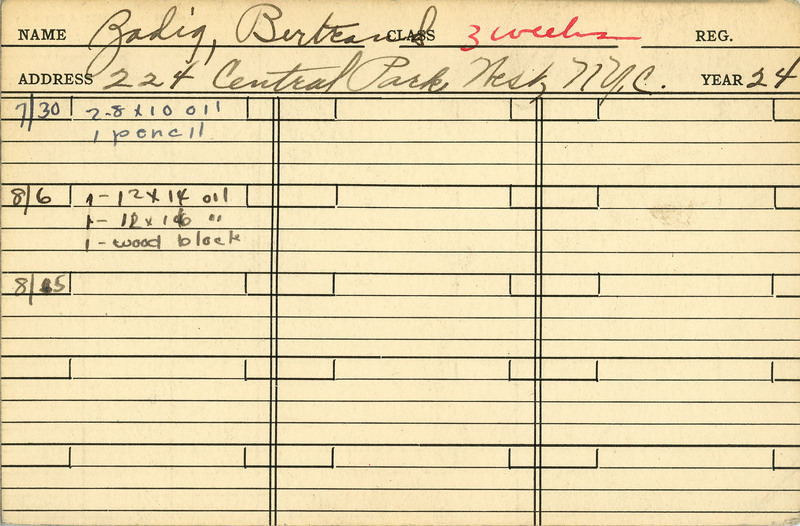 NAME Zadig, Bertrand CLASS 3 weeks REG.
ADDRESS 224 Central Park West, N.Y.C. YEAR 24
7/30 2-8x10 oil
1 pencil
8/6 1-12x14 oil
1-12x16 "
1-wood block
8/15